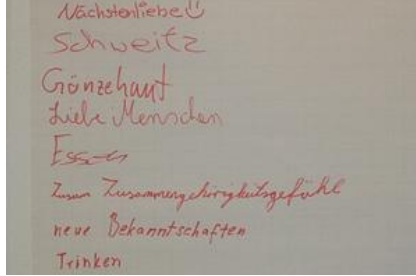 Nächstenliebe☺
Schweitz
Gänzehaut
Liebe Menschen
Essen
Zusam Zusammengehörigkeitsgefühl
neue Bekanntschaften
Trinken